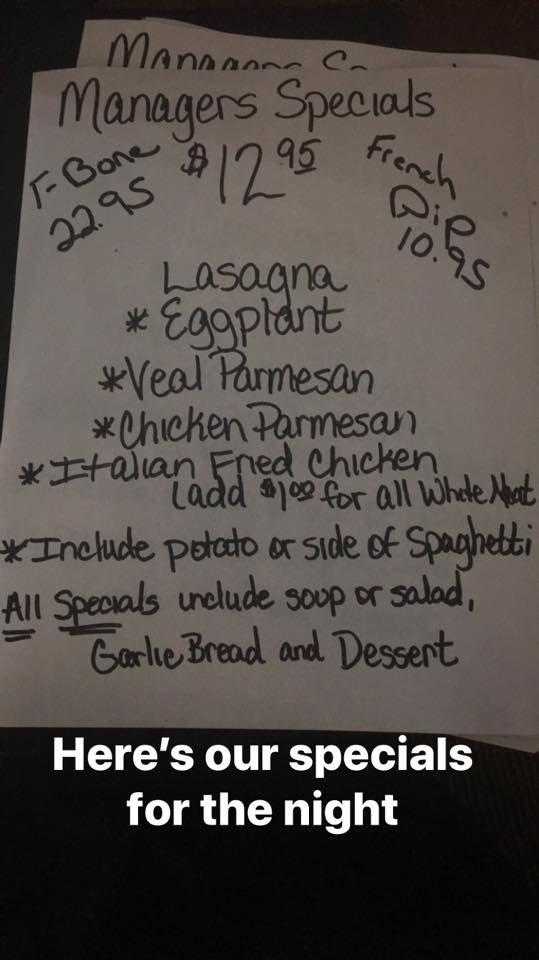 Managers S
Managers Specials
T-Bone
22.95
$12.95
French
Dip
10.95
Lasagna
* Eggplant
*Veal Parmesan
*Chicken Parmesan
*Italian Fried Chicken
(add $1.00 for all White Meat
*Include potato or side of Spaghetti
All Specials include soup or salad,
Garlic Bread and Dessert
Here's our specials
for the night